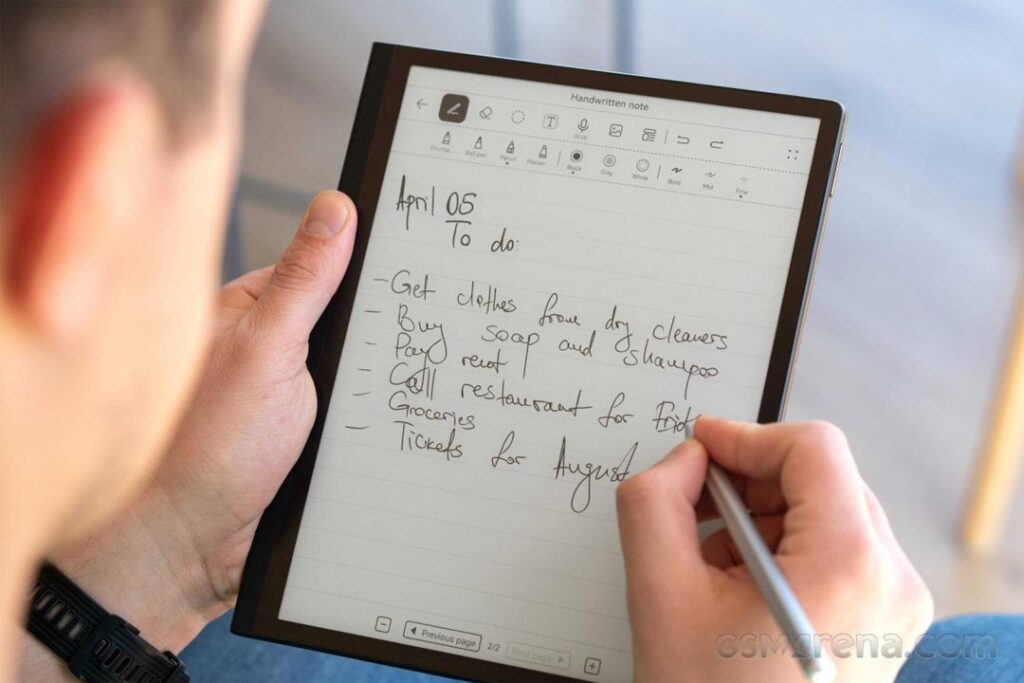 Handwritten note
T
Ball pen Pencil Marker Black Gray White Bold Mid Fine
April 05
To do:
- Get clothes from dry cleaners
- Buy soap and shampoo
- Pay rent
- Call restaurant for
- Groceries
- Tickets for August
Previous page 2/2 Next page
GSMArena.com